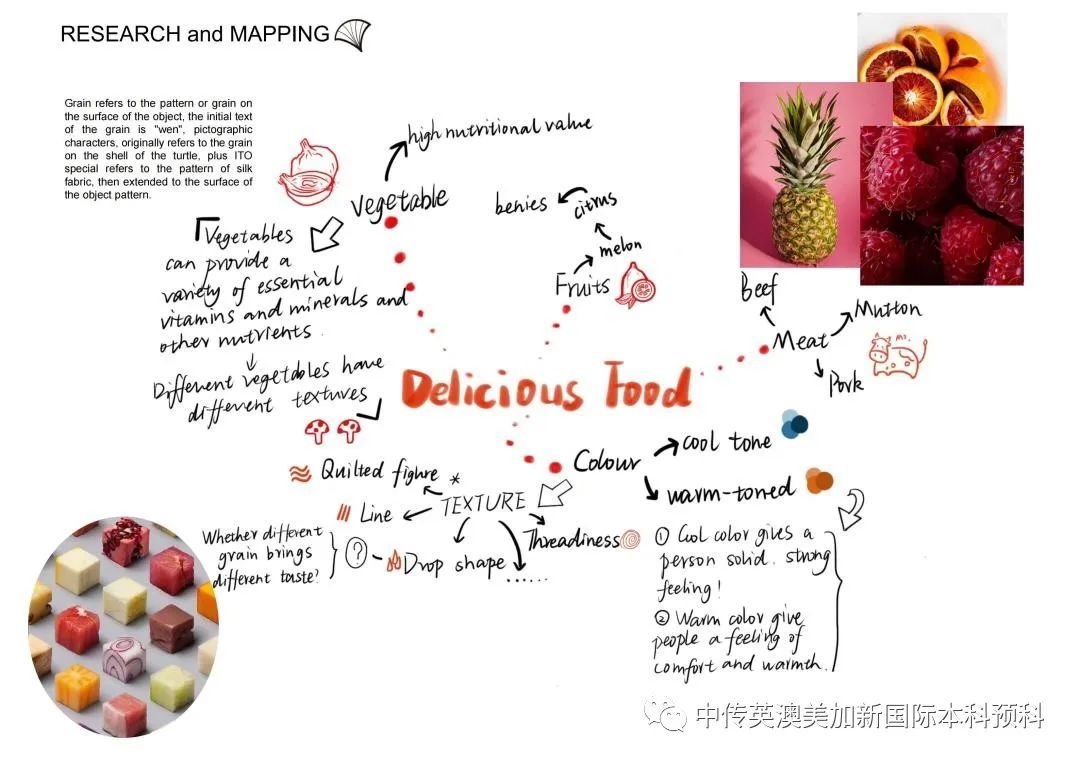 RESEARCH and MAPPING
Grain refers to the pattern or grain on
the surface of the object, the initial text
of the grain is "wen", pictographic
characters, originally refers to the grain
on the shell of the turtle, plus ITO
special refers to the pattern of silk
fabric, then extended to the surface of
the object pattern.
high nutritional value
Vegetable
Vegetables
can provide a
variety of essential
vitamins and minerals and
other nutrients.
Different vegetables have
different textures
benies
citrus
melon
Fruits
Beef
Mutton
Meat
Pork
Delicious Food
Colour
cool tone
warm-toned
① Cool color gives a
person solid. strong
feeling!
② Warm color give
people a feeling of
comfort and warmth.
TEXTURE
Quilted figure *
Line
Drop shape
Threadiness
......
Whether different
grain brings
different taste?
?
中传英澳美加新国际本科预科